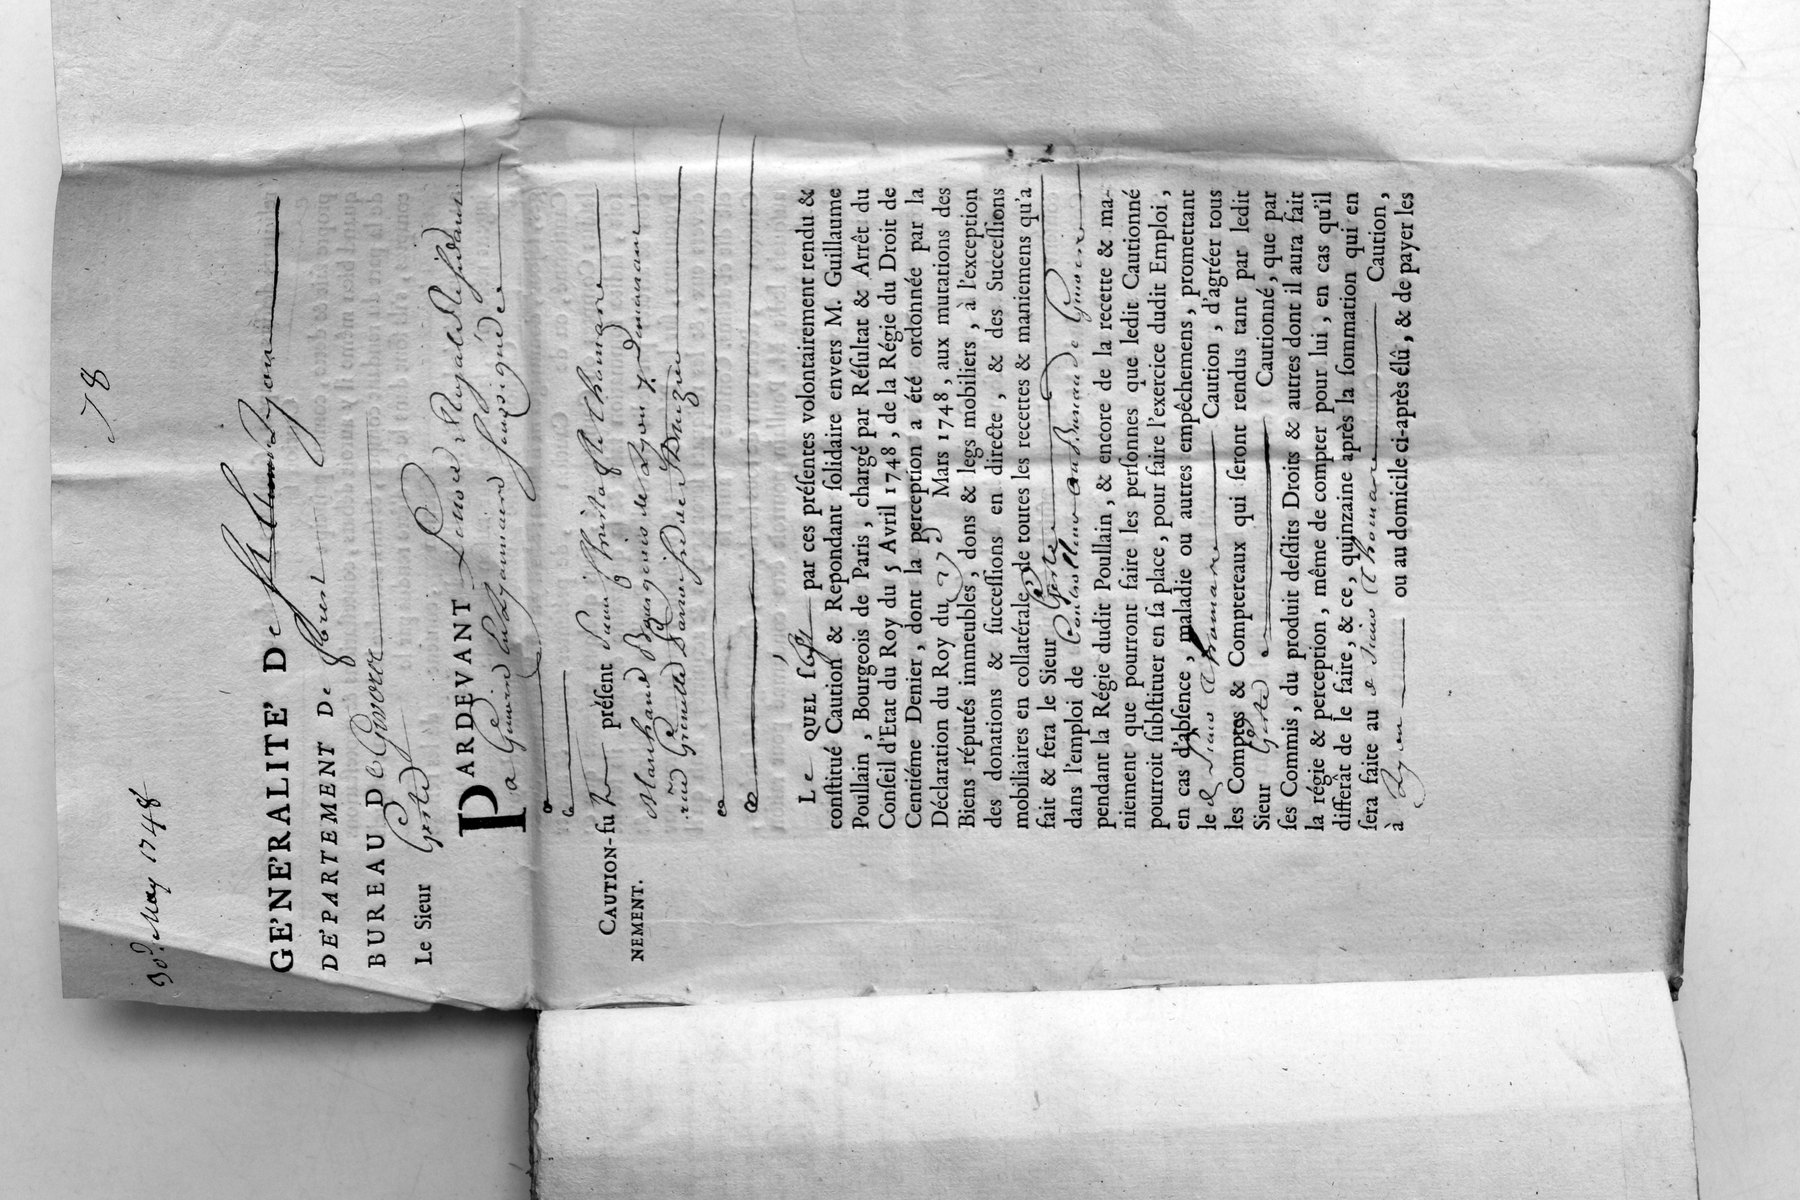 78
30.e May 1748
GE'NE'RALITE' De Lyon
DE'PARTEMENT De forest
BUREAU De Givore
Le Sieur Geste
PARDEVANT Le Notaire Royal
a Lyon soussigné
CAUTION-
NEMENT.
fu présent Sieur thomane
Marchand Bourgeois de Lyon y demeurant
rue
Le QUEL s'est par ces préſentes volontairement rendu &
conſtitué Caution & Repondant ſolidaire envers M. Guillaume
Poullain, Bourgeois de Paris, chargé par Réſultat & Arrêt du
Conſeil d'Etat du Roy du 5 Avril 1748, de la Régie du Droit de
Centiéme Denier, dont la perception a été ordonnée par la
Déclaration du Roy du Mars 1748, aux mutations des
Biens réputés immeubles, dons & legs mobiliers, à l'exception
des donations & ſucceſſions en directe, & des Succeſſions
mobiliaires en collatérale, de toutes les recettes & maniemens qu'a
fait & fera le Sieur Geste
dans l'emploi de Controlleur au Bureau de Givore
pendant la Régie dudit Poullain, & encore de la recette & ma-
niement que pourront faire les perſonnes que ledit Cautionné
pourroit ſubſtituer en ſa place, pour faire l'exercice dudit Emploi,
en cas d'abſence, maladie ou autres empêchemens, promettant
led. Sieur thomane Caution, d'agréer tous
les Comptes & Comptereaux qui ſeront rendus tant par ledit
Sieur Geste Cautionné, que par
ſes Commis, du produit deſdits Droits & autres dont il aura fait
la régie & perception, même de compter pour lui, en cas qu'il
différât de le faire, & ce, quinzaine après la ſommation qui en
ſera faite aud. Sieur thomane Caution,
à Lyon ou au domicile ci-après élû, & de payer les